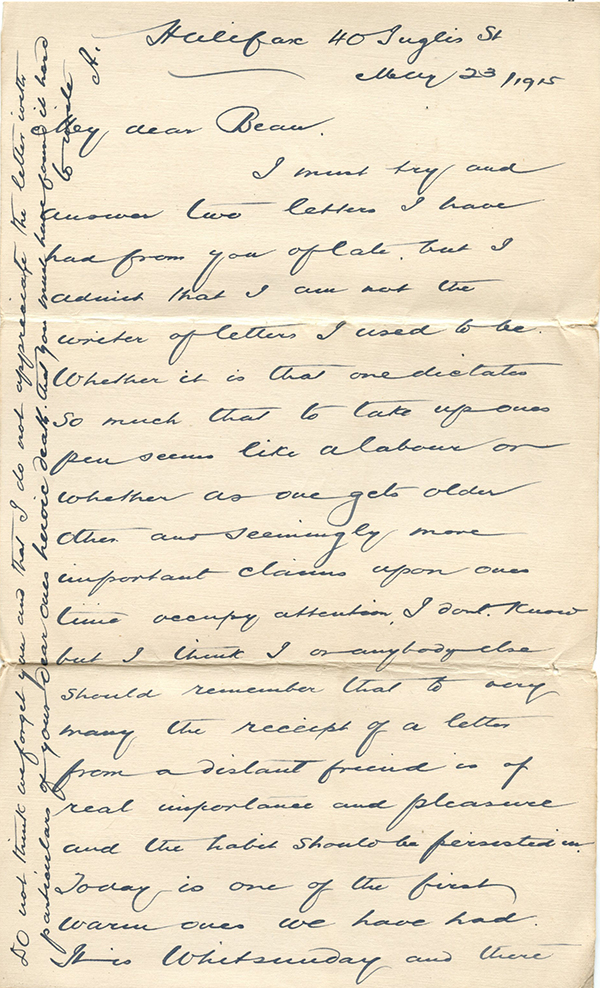 Halifax 40 Inglis St
May 23/1915
My dear Beau.
I must try and
answer two letters I have
had from you of late. but I
admit that I am not the
writer of letters I used to be.
Whether it is that one dictates
so much that to take up ones
pen seems like a labour or
whether as one gets older
other and seemingly more
important claims upon ones
time occupy attention, I dont. Know
but I think I or anybody else
should remember that to very
many the receipt of a letter
from a distant friend is of
real importance and pleasure
and the habit should be persisted in.
Today is one of the first
warm ones we have had.
It is Whitsunday and there
Do not think we forget you and that I do not appreciate the letter with
particulars of your dear ones heroic death. that you must have found it hard
to write
A.